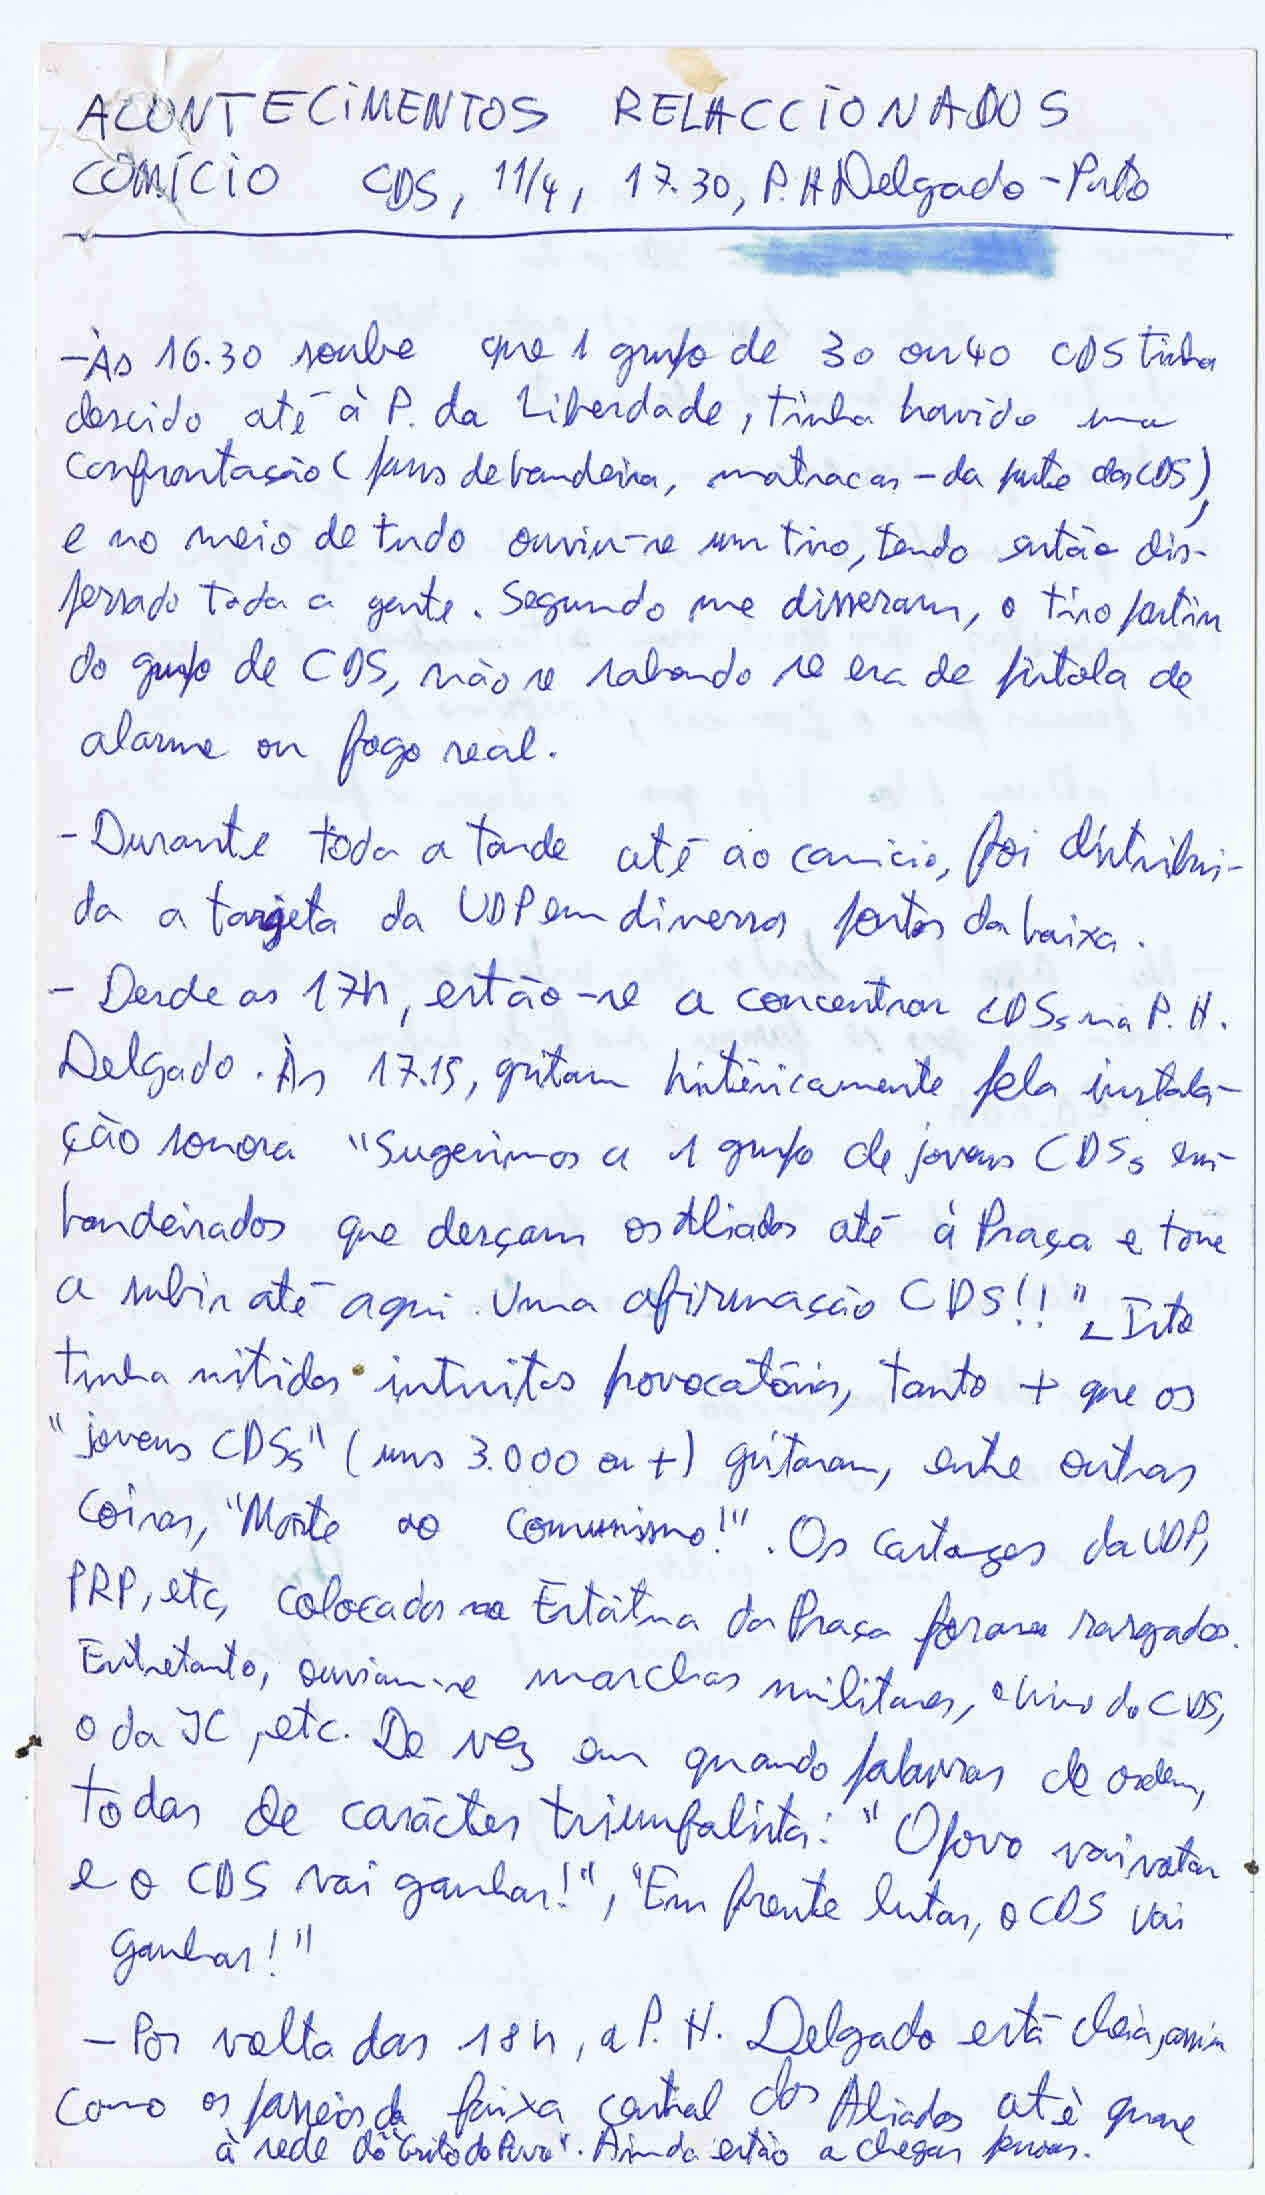 ACONTECIMENTOS RELACCIONADOS
COMÍCIO CDS, 11/4, 17.30, P. H Delgado - Porto
- Às 16.30 soube que 1 grupo de 30 ou 40 CDS tinha
descido até à P. da Liberdade, tinha havido uma
confrontação (paus de bandeira, matracas - da parte dos CDS),
e no meio de tudo ouviu-se um tiro, tendo então dis-
persado toda a gente. Segundo me disseram, o tiro partiu
do grupo de CDS, não se sabendo se era de pistola de
alarme ou fogo real.
- Durante toda a tarde até ao comício, foi distribuí-
da a tarjeta da UDP em diversos pontos da baixa.
- Desde as 17h, estão-se a concentrar CDSs na P. H.
Delgado. Às 17.15, gritam histéricamente pela instala-
ção sonora "Sugerimos a 1 grupo de jovens CDSs em-
bandeirados que desçam os Aliados até à Praça e torne
a subir até aqui. Uma afirmação CDS!!" Isto
tinha nítidos intuitos provocatórios, tanto + que os
"jovens CDSs" (uns 3.000 ou +) gritaram, entre outras
coisas, "Morte ao comunismo!". Os cartazes da UDP,
PRP, etc, colocados na Estátua da Praça foram rasgados.
Entretanto, ouviam-se marchas militares, o hino do CDS,
o da JC, etc. De vez em quando palavras de ordem,
todas de carácter triunfalista: "O povo vai votar
e o CDS vai ganhar!", "Em frente lutar, o CDS vai
ganhar!"
- Por volta das 18h, a P. H. Delgado está cheia, assim
como os passeios da faixa central dos Aliados até quase
à sede do "Grito do Povo". Ainda estão a chegar pessoas.